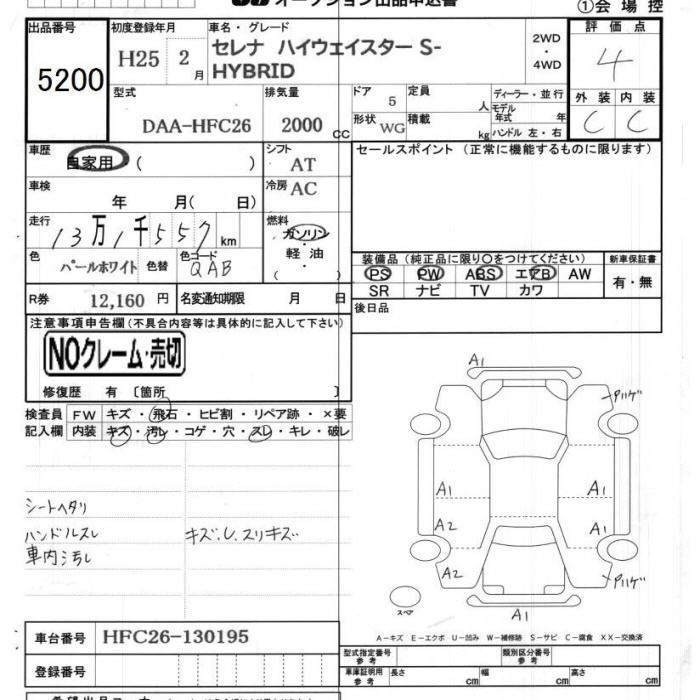 オークション出品申込書
①会場控
出品番号
5200
初度登録年月
H25 2月
車名・グレード
セレナ ハイウェイスター S-HYBRID
2WD・4WD
評価点
4
型式
DAA-HFC26
排気量
2000 cc
ドア 5
形状 WG
定員 人
積載 kg
ディーラー・並行
モデル年式 年
ハンドル 左・右
外装 内装
C C
車歴
自家用 ( )
シフト AT
車検
年 月( 日)
冷房 AC
走行
13万1千557km
燃料
ガソリン・軽油
( )
色
パールホワイト
色替
色コード
QAB
R券 12,160 円
名変通知期限 月 日
セールスポイント (正常に機能するものに限ります)
装備品 (純正品に限り〇をつけてください)
PS PW ABS エアB AW
SR ナビ TV カワ
新車保証書
有・無
後日品
注意事項申告欄 (不具合内容等は具体的に記入して下さい)
NOクレーム・売切
修復歴 有 〔箇所 〕
検査員 FW キズ・飛石・ヒビ割・リペア跡・×要
記入欄 内装 キズ・汚レ・コゲ・穴・スレ・キレ・破レ
シートヘタリ
ハンドルスレ キズ.U.スリキズ
車内汚れ
A1
A1 A1
A2 A1
A2
A1
スペア
A-キズ E-エクボ U-凹み W-補修跡 S-サビ C-腐食 XX-交換済
車台番号 HFC26-130195
登録番号
型式指定番号 参考
類別区分番号 参考
車庫証明用 参考 長さ cm 幅 cm 高さ cm